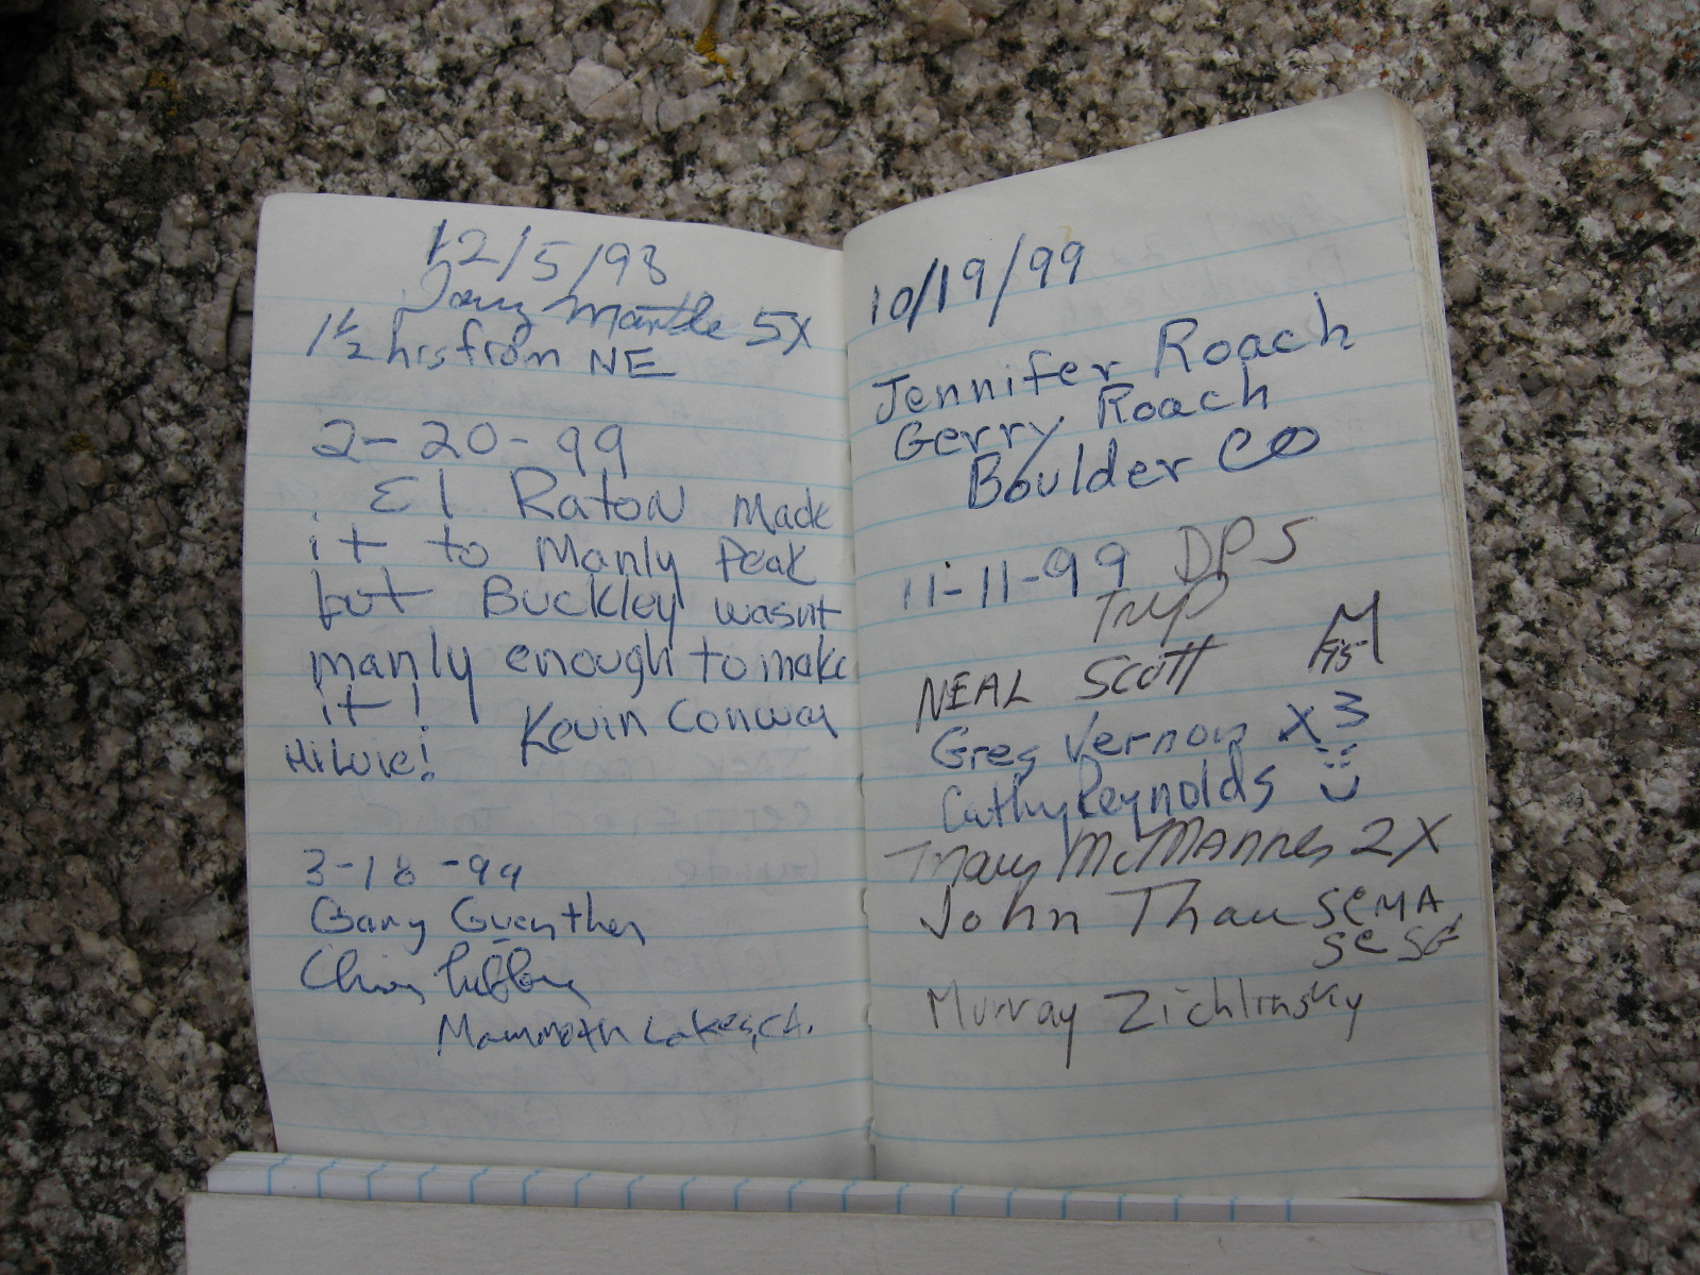 12/5/98
Doug Mantle 5X
1½ hrs from NE
2-20-99
El Raton made
it to Manly Peak
but Buckley wasnt
manly enough to make
it! Kevin Conway
3-18-99
Gary Guenther
Mammoth Lakes, CA.
10/19/99
Jennifer Roach
Gerry Roach
Boulder CO
11-11-99 DPS
Trip
NEAL Scott
Greg Vernon X3
Cathy Reynolds
Mary McMannes 2X
John Thau
Murray Zichlinsky